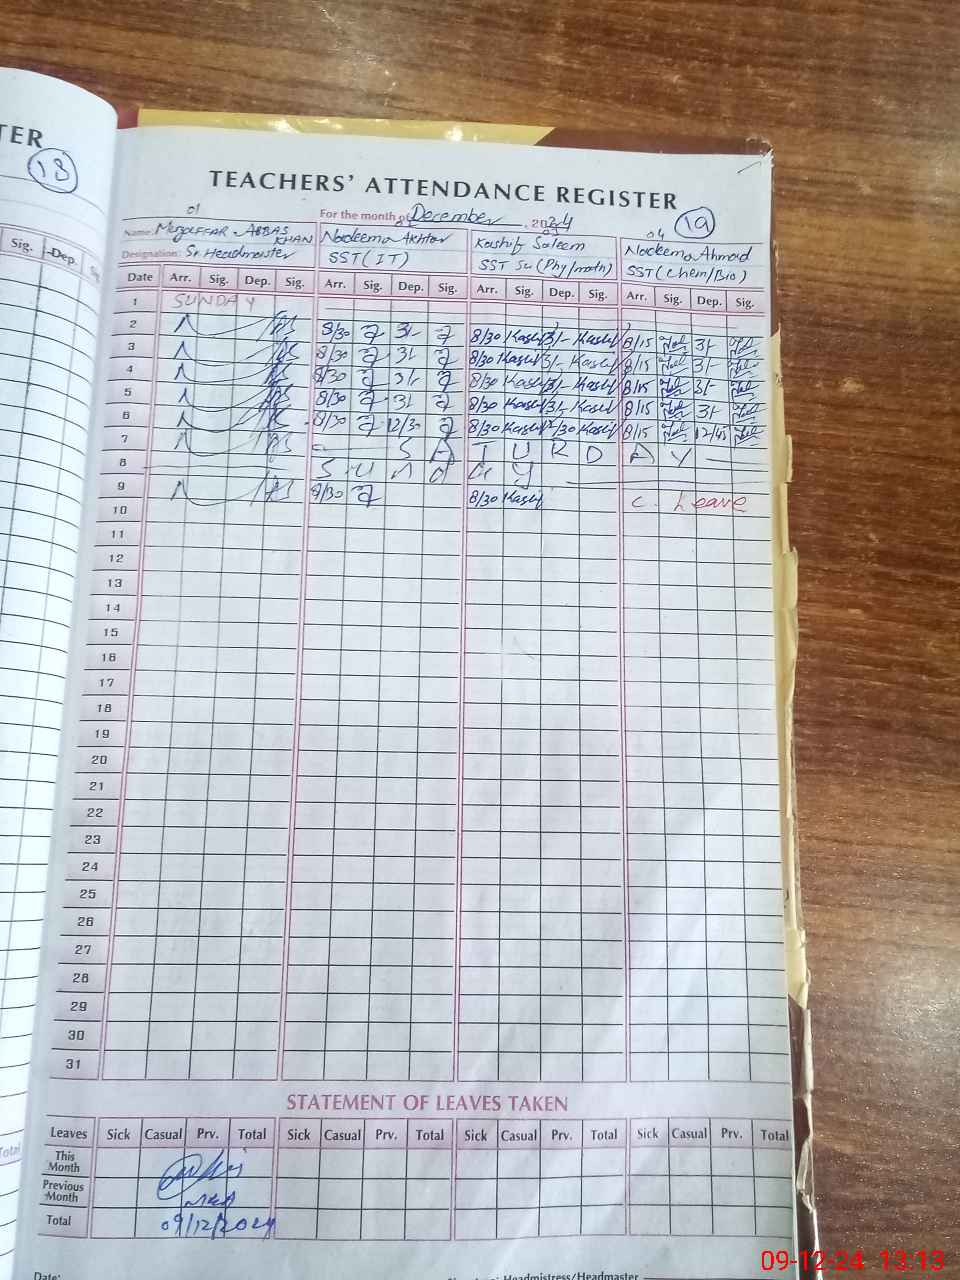 TER
18
TEACHERS' ATTENDANCE REGISTER
For the month of December, 2024
19
01 03 04
Name: ABBAS KHAN Nadeem Akhtar Kashif Saleem Nadeem Ahmad
Designation: Sr. Headmaster SST (IT) SST Sc (Phy/math) SST (Chem/Bio)
Sig. Dep.
Date Arr. Sig. Dep. Sig. Arr. Sig. Dep. Sig. Arr. Sig. Dep. Sig. Arr. Sig. Dep. Sig.
1 SUNDAY
2 8/30 3/- 8/30 Kashif 3/- Kashif 8/15 3/-
3 8/30 3/- 8/30 Kashif 3/- Kashif 8/15 3/-
4 8/30 3/- 8/30 Kashif 3/- Kashif 8/15 3/-
5 8/30 3/- 8/30 Kashif 3/- Kashif 8/15 3/-
6 8/30 12/30 8/30 Kashif 12/30 Kashif 8/15 12/45
7 SATURDAY
8 Sunday
9 8/30 8/30 Kashif C. Leave
10
11
12
13
14
15
16
17
18
19
20
21
22
23
24
25
26
27
28
29
30
31
STATEMENT OF LEAVES TAKEN
Leaves Sick Casual Prv. Total Sick Casual Prv. Total Sick Casual Prv. Total Sick Casual Prv. Total
This Month
Previous Month
Total 09/12/2024
Total
Date:
Headmistress/Headmaster
09-12-24 13:13